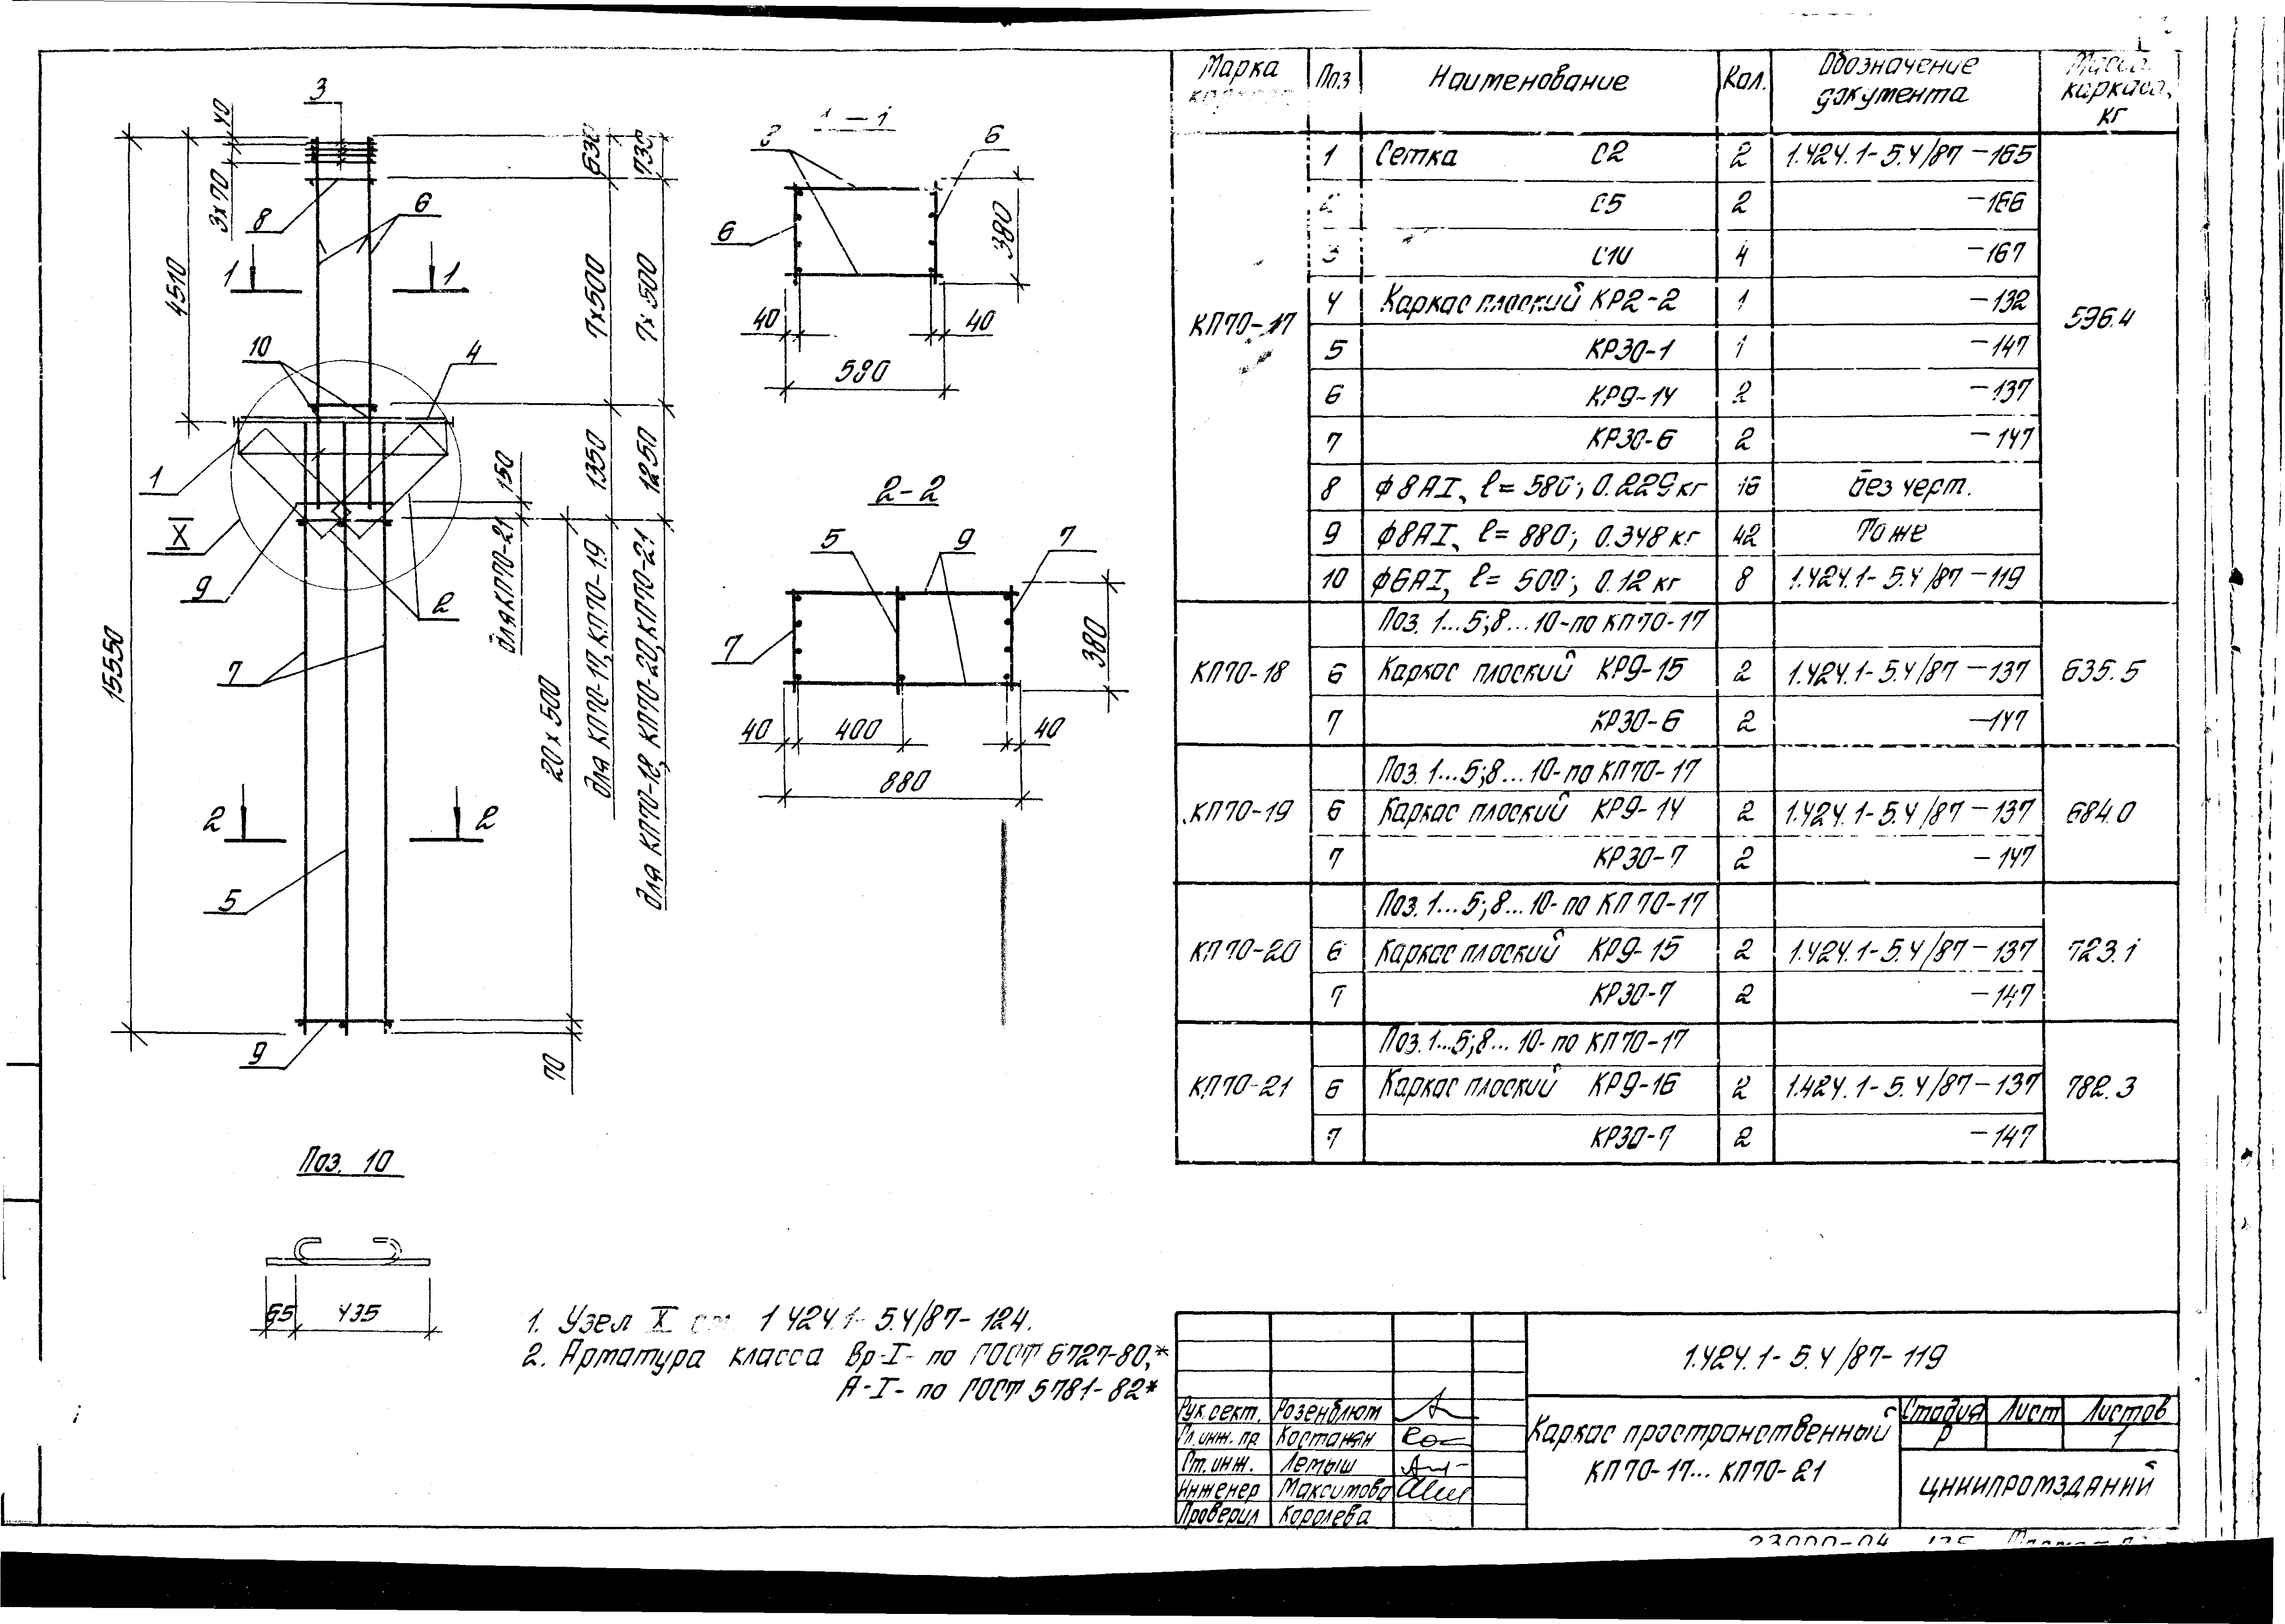 3
40
3х70
4510
15550
8
6
1
1
10
4
1
X
9
2
7
2
2
5
9
630
730
7х500
7х500
1350
1250
150
для КП70-21
20х500
для КП70-17, КП70-19
для КП70-18, КП70-20, КП70-21
70
1-1
6
6
380
40
40
580
2-2
5
9
7
7
380
40
400
40
880
Поз. 10
65
435
1. Узел X см 1424.1-5.4/87-124.
2. Арматура класса Вр-I- по ГОСТ 6727-80,*
А-I- по ГОСТ 5781-82*
Марка Поз Наименование Кол. Обозначение документа Масса каркаса, кг
КП70-17 596.4
1 Сетка С2 2 1.424.1-5.4/87-165
2 С5 2 -166
3 С10 4 -167
4 Каркас плоский КР2-2 1 -132
5 КР30-1 1 -147
6 КР9-14 2 -137
7 КР30-6 2 -147
8 ф8АI, ℓ=580; 0.229кг 16 без черт.
9 ф8АI, ℓ=880; 0.348кг 42 То же
10 ф6АI, ℓ=500; 0.12кг 8 1.424.1-5.4/87-119
Поз. 1...5;8...10-по КП70-17
КП70-18 6 Каркас плоский КР9-15 2 1.424.1-5.4/87-137 635.5
7 КР30-6 2 -147
Поз. 1...5;8...10-по КП70-17
КП70-19 6 Каркас плоский КР9-14 2 1.424.1-5.4/87-137 684.0
7 КР30-7 2 -147
Поз. 1...5;8...10-по КП70-17
КП70-20 6 Каркас плоский КР9-15 2 1.424.1-5.4/87-137 723.1
7 КР30-7 2 -147
Поз. 1...5;8...10-по КП70-17
КП70-21 6 Каркас плоский КР9-16 2 1.424.1-5.4/87-137 782.3
7 КР30-7 2 -147
1.424.1-5.4/87-119
Рук.сект. Розенблюм
Гл.инж.пр Костанян
Ст.инж. Летыш
Инженер Максимова
Проверил Королева
Каркас пространственный
КП70-17...КП70-21
Стадия Лист Листов
Р 1
ЦНИИПРОМЗДАНИЙ